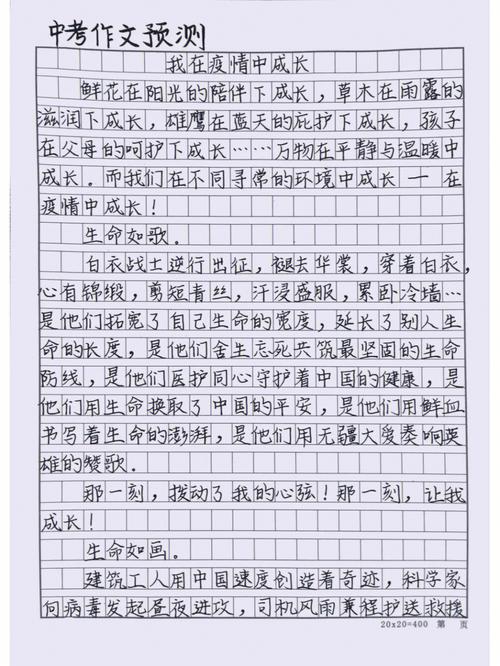 中考作文预测
我在疫情中成长
鲜花在阳光的陪伴下成长，草木在雨露的
滋润下成长，雄鹰在蓝天的庇护下成长，孩子
在父母的呵护下成长……万物在平静与温暖中
成长。而我们在不同寻常的环境中成长一在
疫情中成长！
生命如歌．
白衣战士逆行出征，褪去华裳，穿着白衣，
心有锦缎，剪短青丝，汗浸盛服，累卧冷墙…
是他们拓宽了自己生命的宽度，延长了别人生
命的长度，是他们舍生忘死共筑最坚固的生命
防线，是他们医护同心守护着中国的健康，是
他们用生命换取了中国的平安，是他们用鲜血
书写着生命的澎湃，是他们用无疆大爱奏响英
雄的赞歌．
那一刻，拨动了我的心弦！那一刻，让我
成长！
生命如画。
建筑工人用中国速度创造着奇迹，科学家
向病毒发起昼夜进攻，司机风雨兼程护送救援
20x20=400 第 页